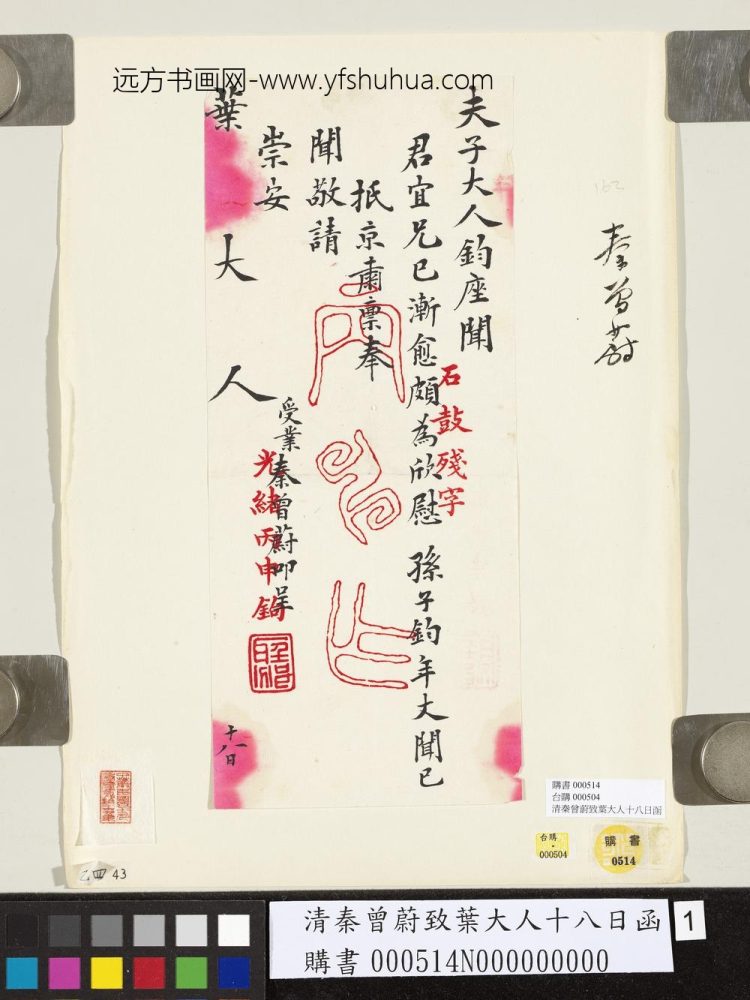 远方书画网-www.yfshuhua.com
夫子大人鈞座聞
君宜兄已漸愈頗為欣慰 孫子鈞年丈聞已
抵京肅稟奉
聞敬請
崇安
葉 大 人
受業秦曾蔚叩呈
十八日
石鼓殘字
光緒丙申鉤
秦曾蔚
162
購書 000514
台購 000504
清秦曾蔚致葉大人十八日函
台購
000504
購書
0514
乙四 43
清秦曾蔚致葉大人十八日函
購書 000514N000000000
1